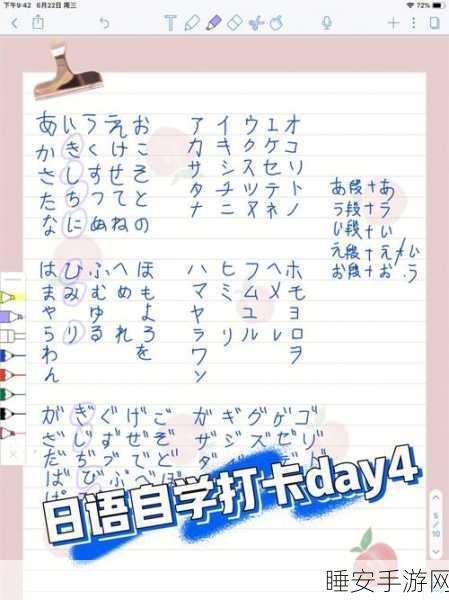 下午9:42 6月22日 周三
72%
あいうえお
かきくけこ
さしすせそ
たちつてと
なにぬねの
はひふへほ
まみむめも
や ゆ よ
らりるれろ
わ を
ん
アイウエオ
カキクケコ
サシスセリ
タチツテト
ナニヌネノ
ハヒフヘホ
マミムメモ
ヤ ユ ヨ
ラリルレロ
ワ ヲ
ン
あ段+あ
う段+う
い段+い
え段+え/+い
お段+お/う
がぎぐげご
ざじずぜぞ
だぢづでど
ばびぶべぼ
ガギグゲゴ
ザジズゼ
日语自学打卡day4
5/10
睡安手游网